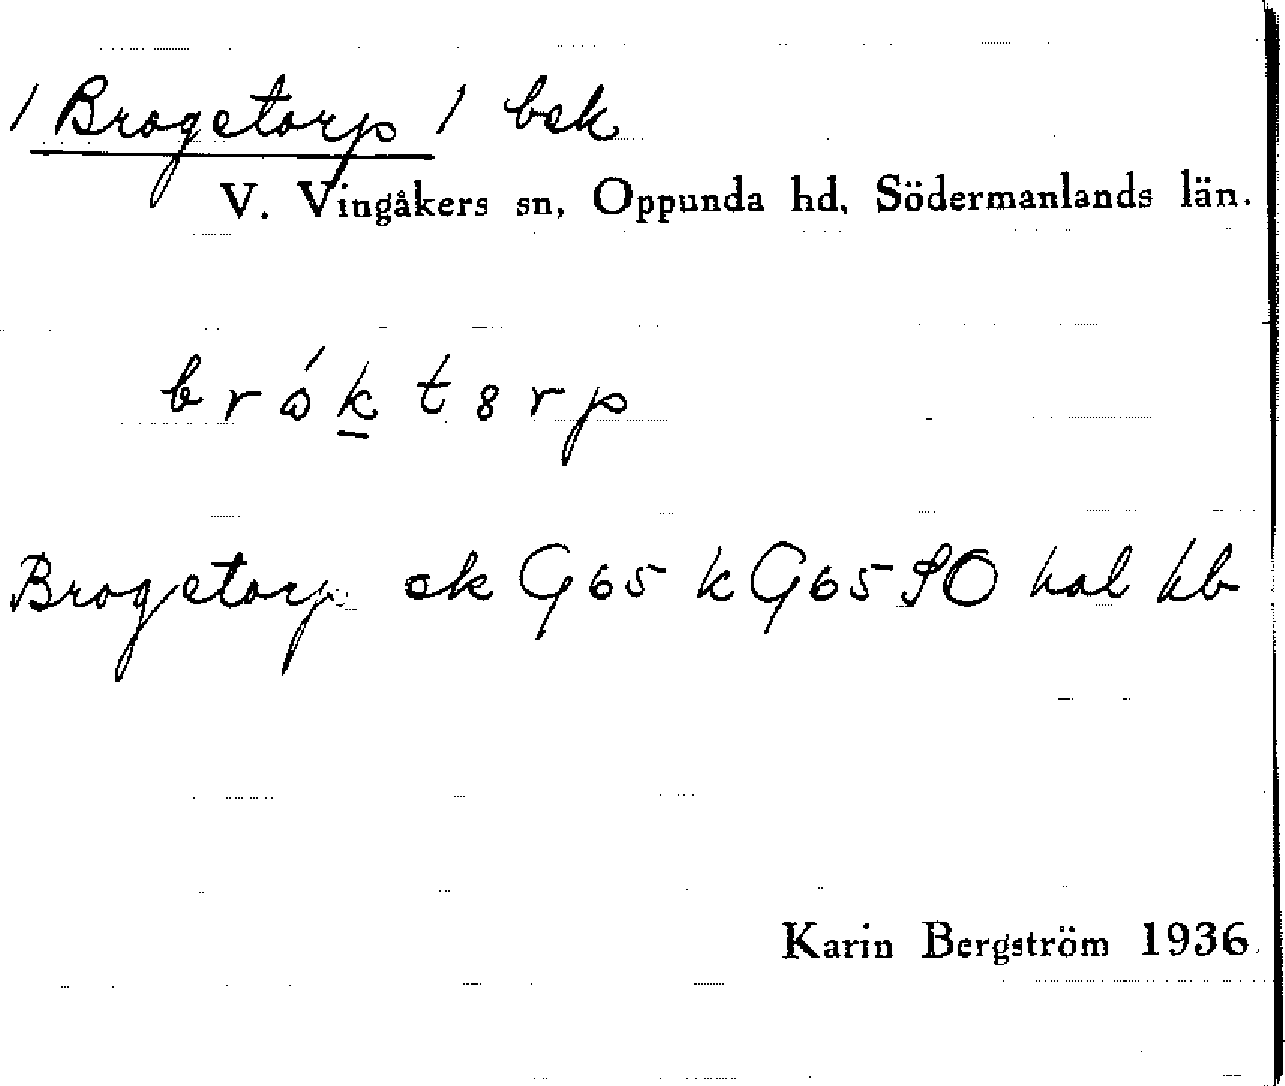 / Brogetorp / bek
V. Vingåkers sn, Oppunda hd, Södermanlands län.
brók t8rp
Brogetorp ek G65 kG65 SO hal hb
Karin Bergström 1936